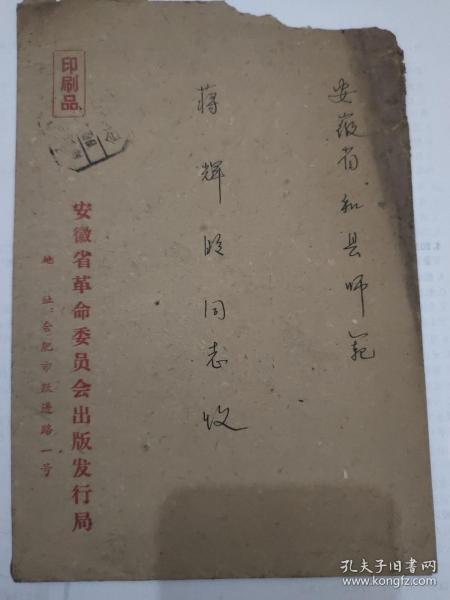 安徽省和县师范
蒋辉明同志收
印刷品
安徽省革命委员会出版发行局
地址:合肥市跃进路一号
孔夫子旧书网
www.kongfz.com